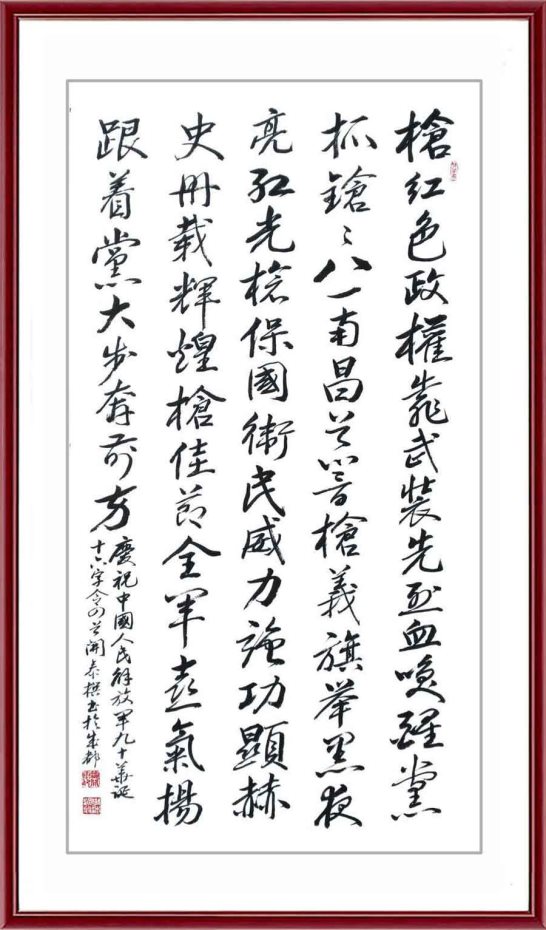 槍紅色政權靠武裝先烈血喚醒黨
抓鎗〻八一南昌首響槍義旗举黑夜
亮紅光槍保國衛民威力強功顯赫
史册載輝煌槍佳節全軍喜氣揚
跟着黨大步奔前方
慶祝中國人民解放軍九十華誕
十六字令四首開泰撰書於成都